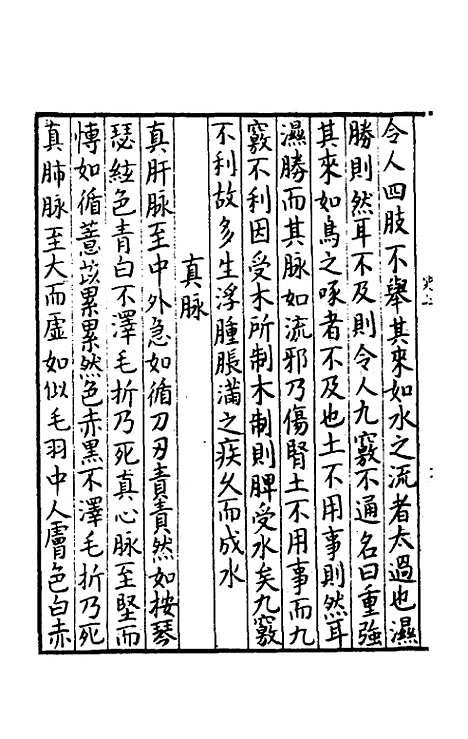 令人四肢不舉其來如水之流者太過也濕
勝則然耳不及則令人九竅不通名曰重強
其來如鳥之啄者不及也土不用事則然耳
濕勝而其脉如流邪乃傷腎土不用事而九
竅不利因受木所制木制則脾受水矣九竅
不利故多生浮腫脹滿之疾久而成水
真脉
真肝脉至中外急如循刀刃責責然如按琴
瑟絃色青白不澤毛折乃死真心脉至堅而
慱如循薏苡累累然色赤黑不澤毛折乃死
真肺脉至大而虛如似毛羽中人膚色白赤